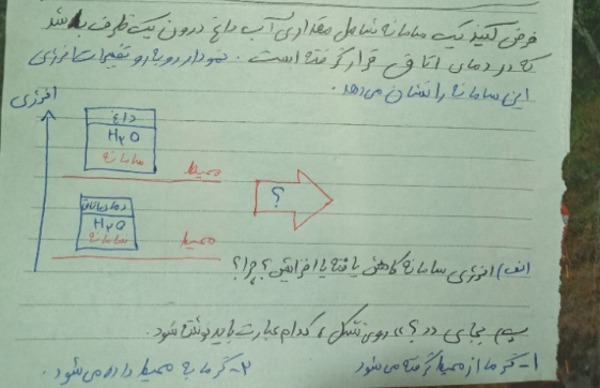 فرض کنید یک سامانه شامل مقداری آب داغ درون یک ظرف باشد
که در دمای اتاق قرار گرفته است. نمودار روبه رو تغییرات انرژی
این سامانه را نشان می دهد.
انرژی
داغ
H۲O
سامانه
محیط
؟
دمای اتاق
H۲O
سامانه
محیط
الف) انرژی سامانه کاهش یافته یا افزایش؟ چرا؟
ب) بجای «؟» روی شکل، کدام عبارت باید نوشته شود.
۱- گرما از محیط گرفته می شود
۲- گرما به محیط داده می شود.